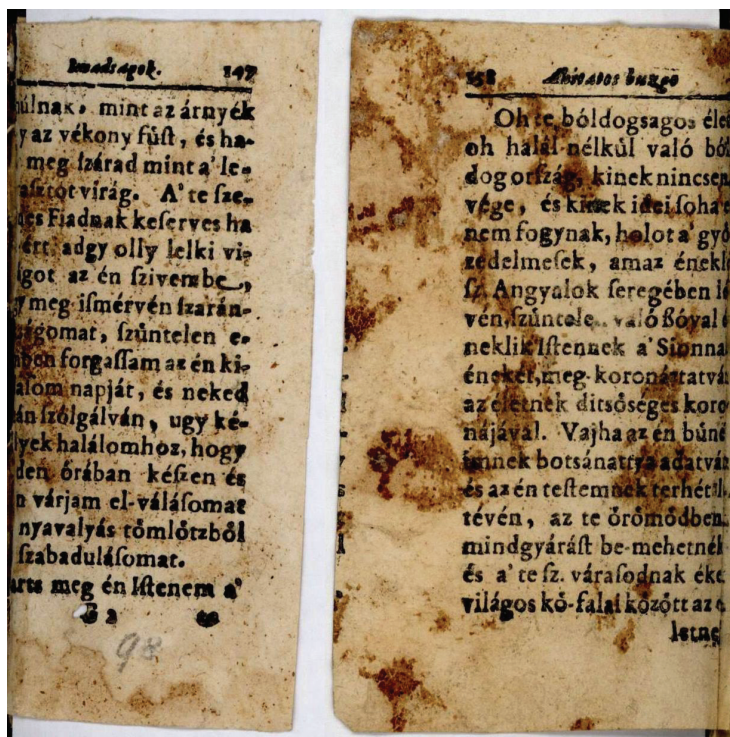 Imadságok. 147
múlnak, mint az árnyék
y az vékony fúſt, és ha-
meg ſzárad mint a' le-
asztot virág. A' te ſze-
des Fiadnak keſerves ha
ért adgy olly lelki vi-
got az én ſzivembe,
y meg iſmérvén ſzarán-
ágomat, ſzúntelen e-
mben forgaſſam az én ki-
alom napját, és neked
án ſzólgálván, ugy ké-
lyek halálomhoz, hogy
den órában kéſzen és
n várjam el-váláſomat
nyavalyás tömlötzből
szabaduláſomat.
arts meg én Iſtenem a'
98
158 Áhitatos buzgo
Oh te bóldogsagos éle
oh halál nélkúl való ból
dog orſzág, kinek nincsen
vége, és kinek idei ſoha
nem fogynak, holot a' gyö
zedelmeſek, amaz énekl
ſz. Angyalok ſeregében lé
vén, ſzúntele való ßóval é
neklik Iſtennek a' Sionnak
éneket, meg-koronáztatván
az életnek ditsőséges koro
nájával. Vajha az én búne
imnek botsánattya adatván
és az én teſtemnek terhét l
tévén, az te örömödben
mindgyáráſt be-mehetnék
és a' te ſz. váraſodnak éke
világos kő-falai között az
letne